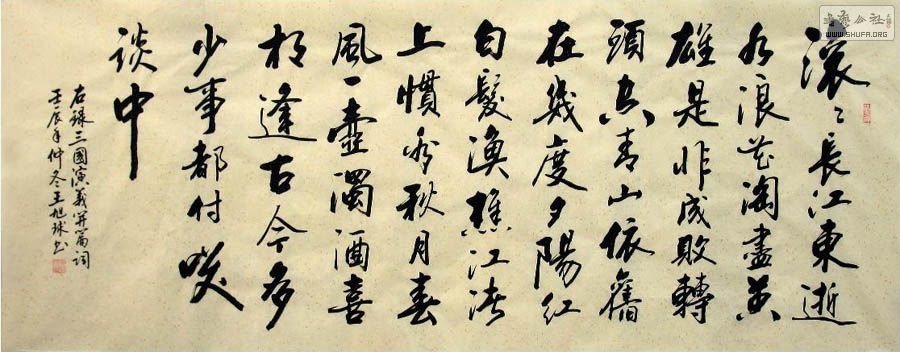 滚々長江東逝
水浪花淘盡英
雄是非成敗轉
頭空青山依舊
在幾度夕陽紅
白髮漁樵江渚
上慣看秋月春
風一壺濁酒喜
相逢古今多
少事都付笑
談中
右録三國演義开篇詞
壬辰年仲冬王旭球书
书艺公社
WWW.SHUFA.ORG